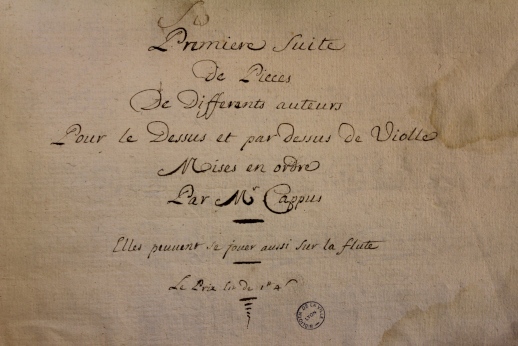 Premiere Suite
De Pieces
De Differents auteurs
Pour le Dessus et par dessus de Violle
Mises en ordre
Par Mr Cappus
Elles peuvent se jouer aussi sur la flute
Le Prix est de
LYON